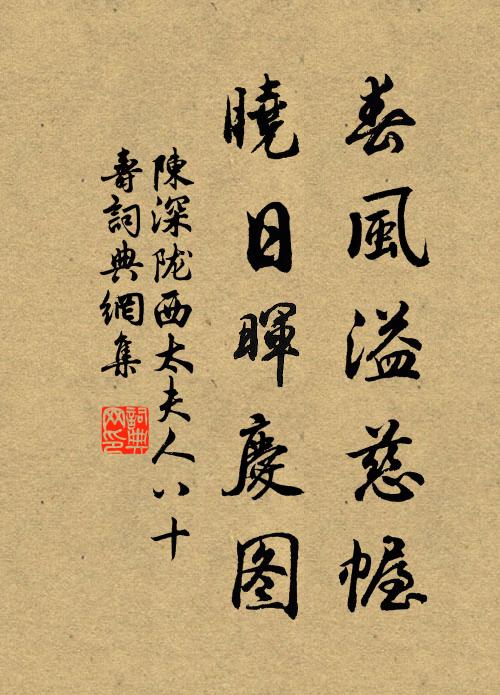 春風溢慈幄
曉日暉慶图
陳深陇西太夫人八十
壽詞典網集
詞典网印